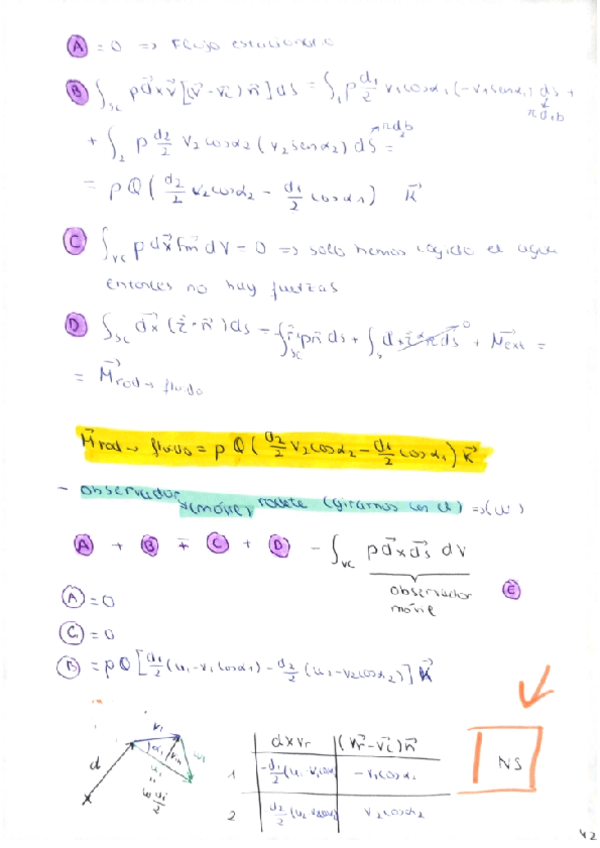 Ⓐ = 0 => Flujo estacionario
Ⓑ ∫sc ρ d⃗ x v⃗ [(v⃗ - v⃗c) n⃗] ds = ∫₁ ρ d₁/2 v₁ cos α₁ (-v₁ sen α₁) ds +
π d₁ b
+ ∫₂ ρ d₂/2 v₂ cos α₂ (v₂ sen α₂) dS =
= ρ Q ( d₂/2 v₂ cos α₂ - d₁/2 cos α₁ ) K⃗
Ⓒ ∫vc ρ d⃗ x f⃗m dV = 0 => solo hemos cogido el agua
entonces no hay fuerzas
Ⓓ ∫sc d⃗ x (τ · n⃗) ds = + M⃗ext =
= M⃗rod → fluido
M⃗rod → fluido = ρ Q ( d₂/2 v₂ cos α₂ - d₁/2 cos α₁ ) K⃗
- observador (móvil) rodete (giramos con él) => (w)
Ⓐ + Ⓑ + Ⓒ + Ⓓ - ∫vc ρ d⃗ x d⃗s dV
observador
móvil
Ⓔ
Ⓐ = 0
Ⓒ = 0
Ⓑ = ρ Q [ d₁/2 (u₁ - v₁ cos α₁) - d₂/2 (u₂ - v₂ cos α₂) ] K⃗
d
d x vr (v⃗r - v⃗c) n⃗
1 -d₁/2 (u₁ - v₁ cos - v₁ cos α₁
2 d₂/2 (u₂ v₂ cos α₂
NS
42